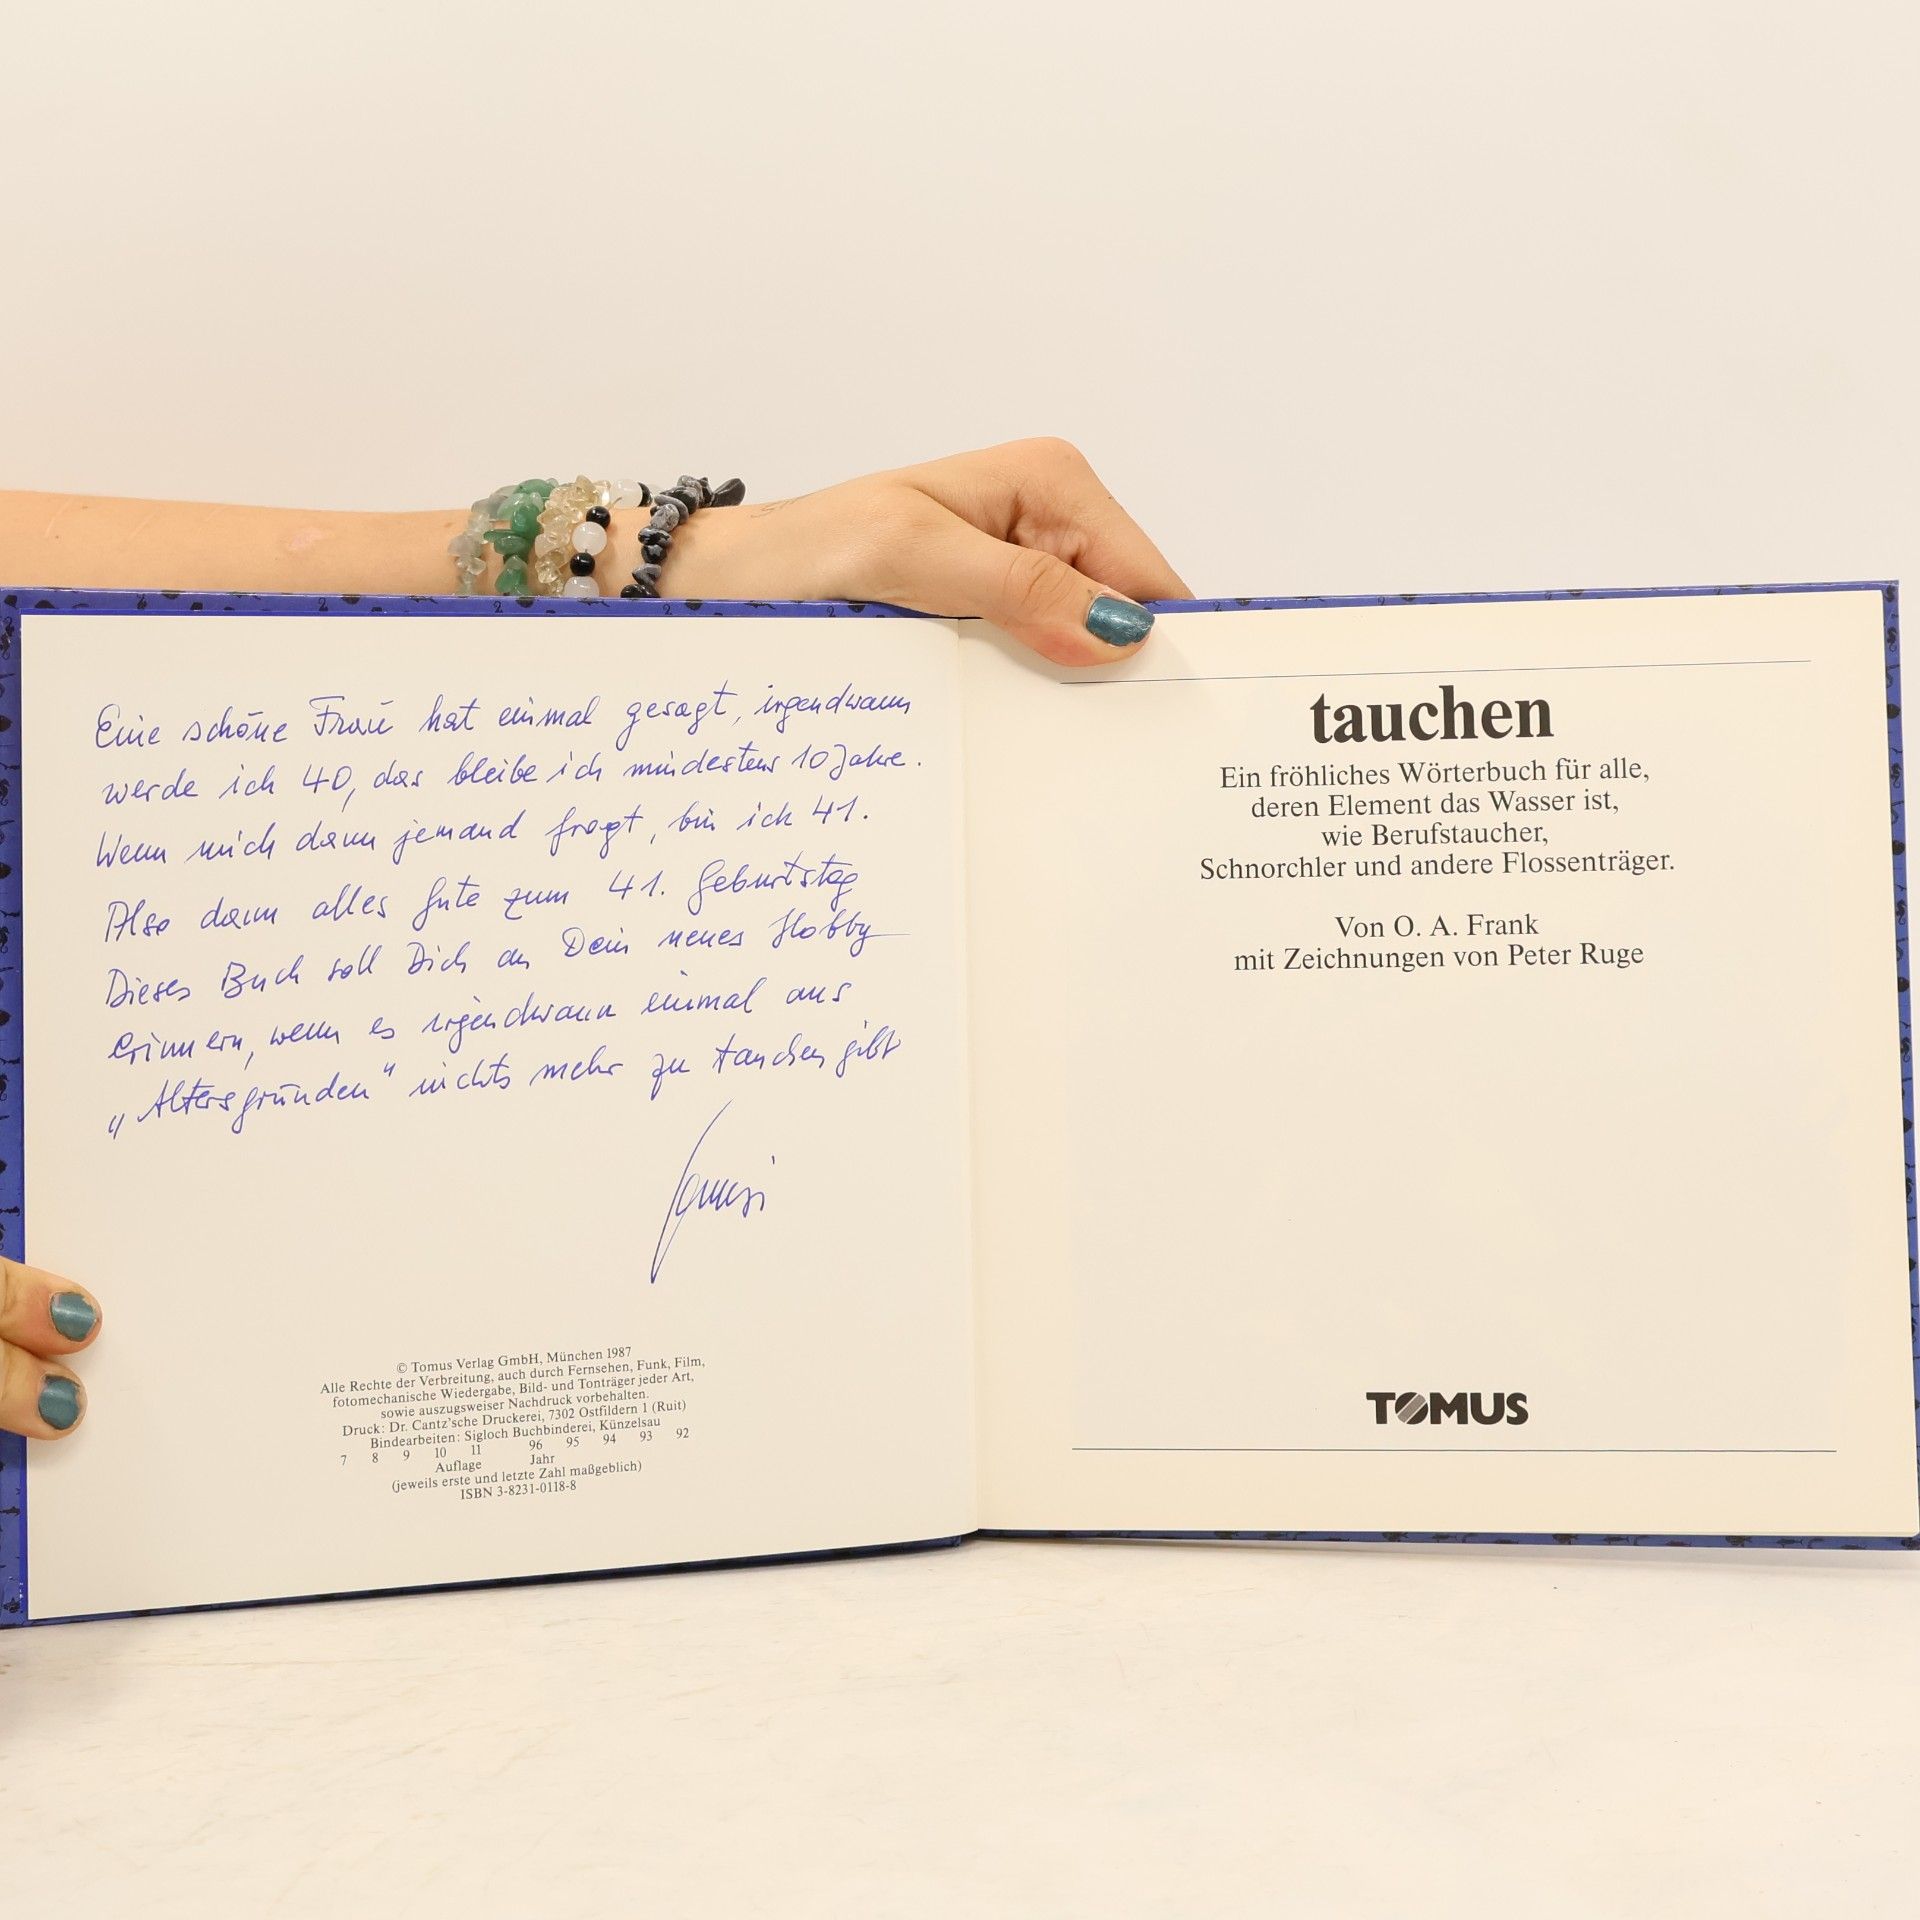 Eine schöne Frau hat einmal gesagt, irgendwann
werde ich 40, das bleibe ich mindestens 10 Jahre.
Wenn mich dann jemand fragt, bin ich 41.
Also dann alles Gute zum 41. Geburtstag
Dieses Buch soll Dich an Dein neues Hobby
erinnern, wenn es irgendwann einmal aus
„Altersgründen“ nichts mehr zu tauchen gibt
© Tomus Verlag GmbH, München 1987
Alle Rechte der Verbreitung, auch durch Fernsehen, Funk, Film,
fotomechanische Wiedergabe, Bild- und Tonträger jeder Art,
sowie auszugsweiser Nachdruck vorbehalten.
Druck: Dr. Cantz'sche Druckerei, 7302 Ostfildern 1 (Ruit)
Bindearbeiten: Sigloch Buchbinderei, Künzelsau
7 8 9 10 11 96 95 94 93 92
Auflage Jahr
(jeweils erste und letzte Zahl maßgeblich)
ISBN 3-8231-0118-8
tauchen
Ein fröhliches Wörterbuch für alle,
deren Element das Wasser ist,
wie Berufstaucher,
Schnorchler und andere Flossenträger.
Von O. A. Frank
mit Zeichnungen von Peter Ruge
TOMUS